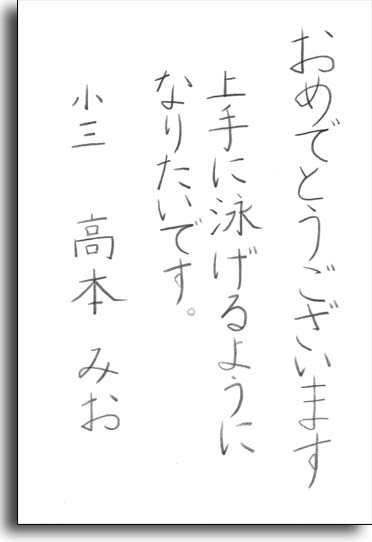 おめでとうございます
上手に泳げるように
なりたいです。
小三 高本 みお